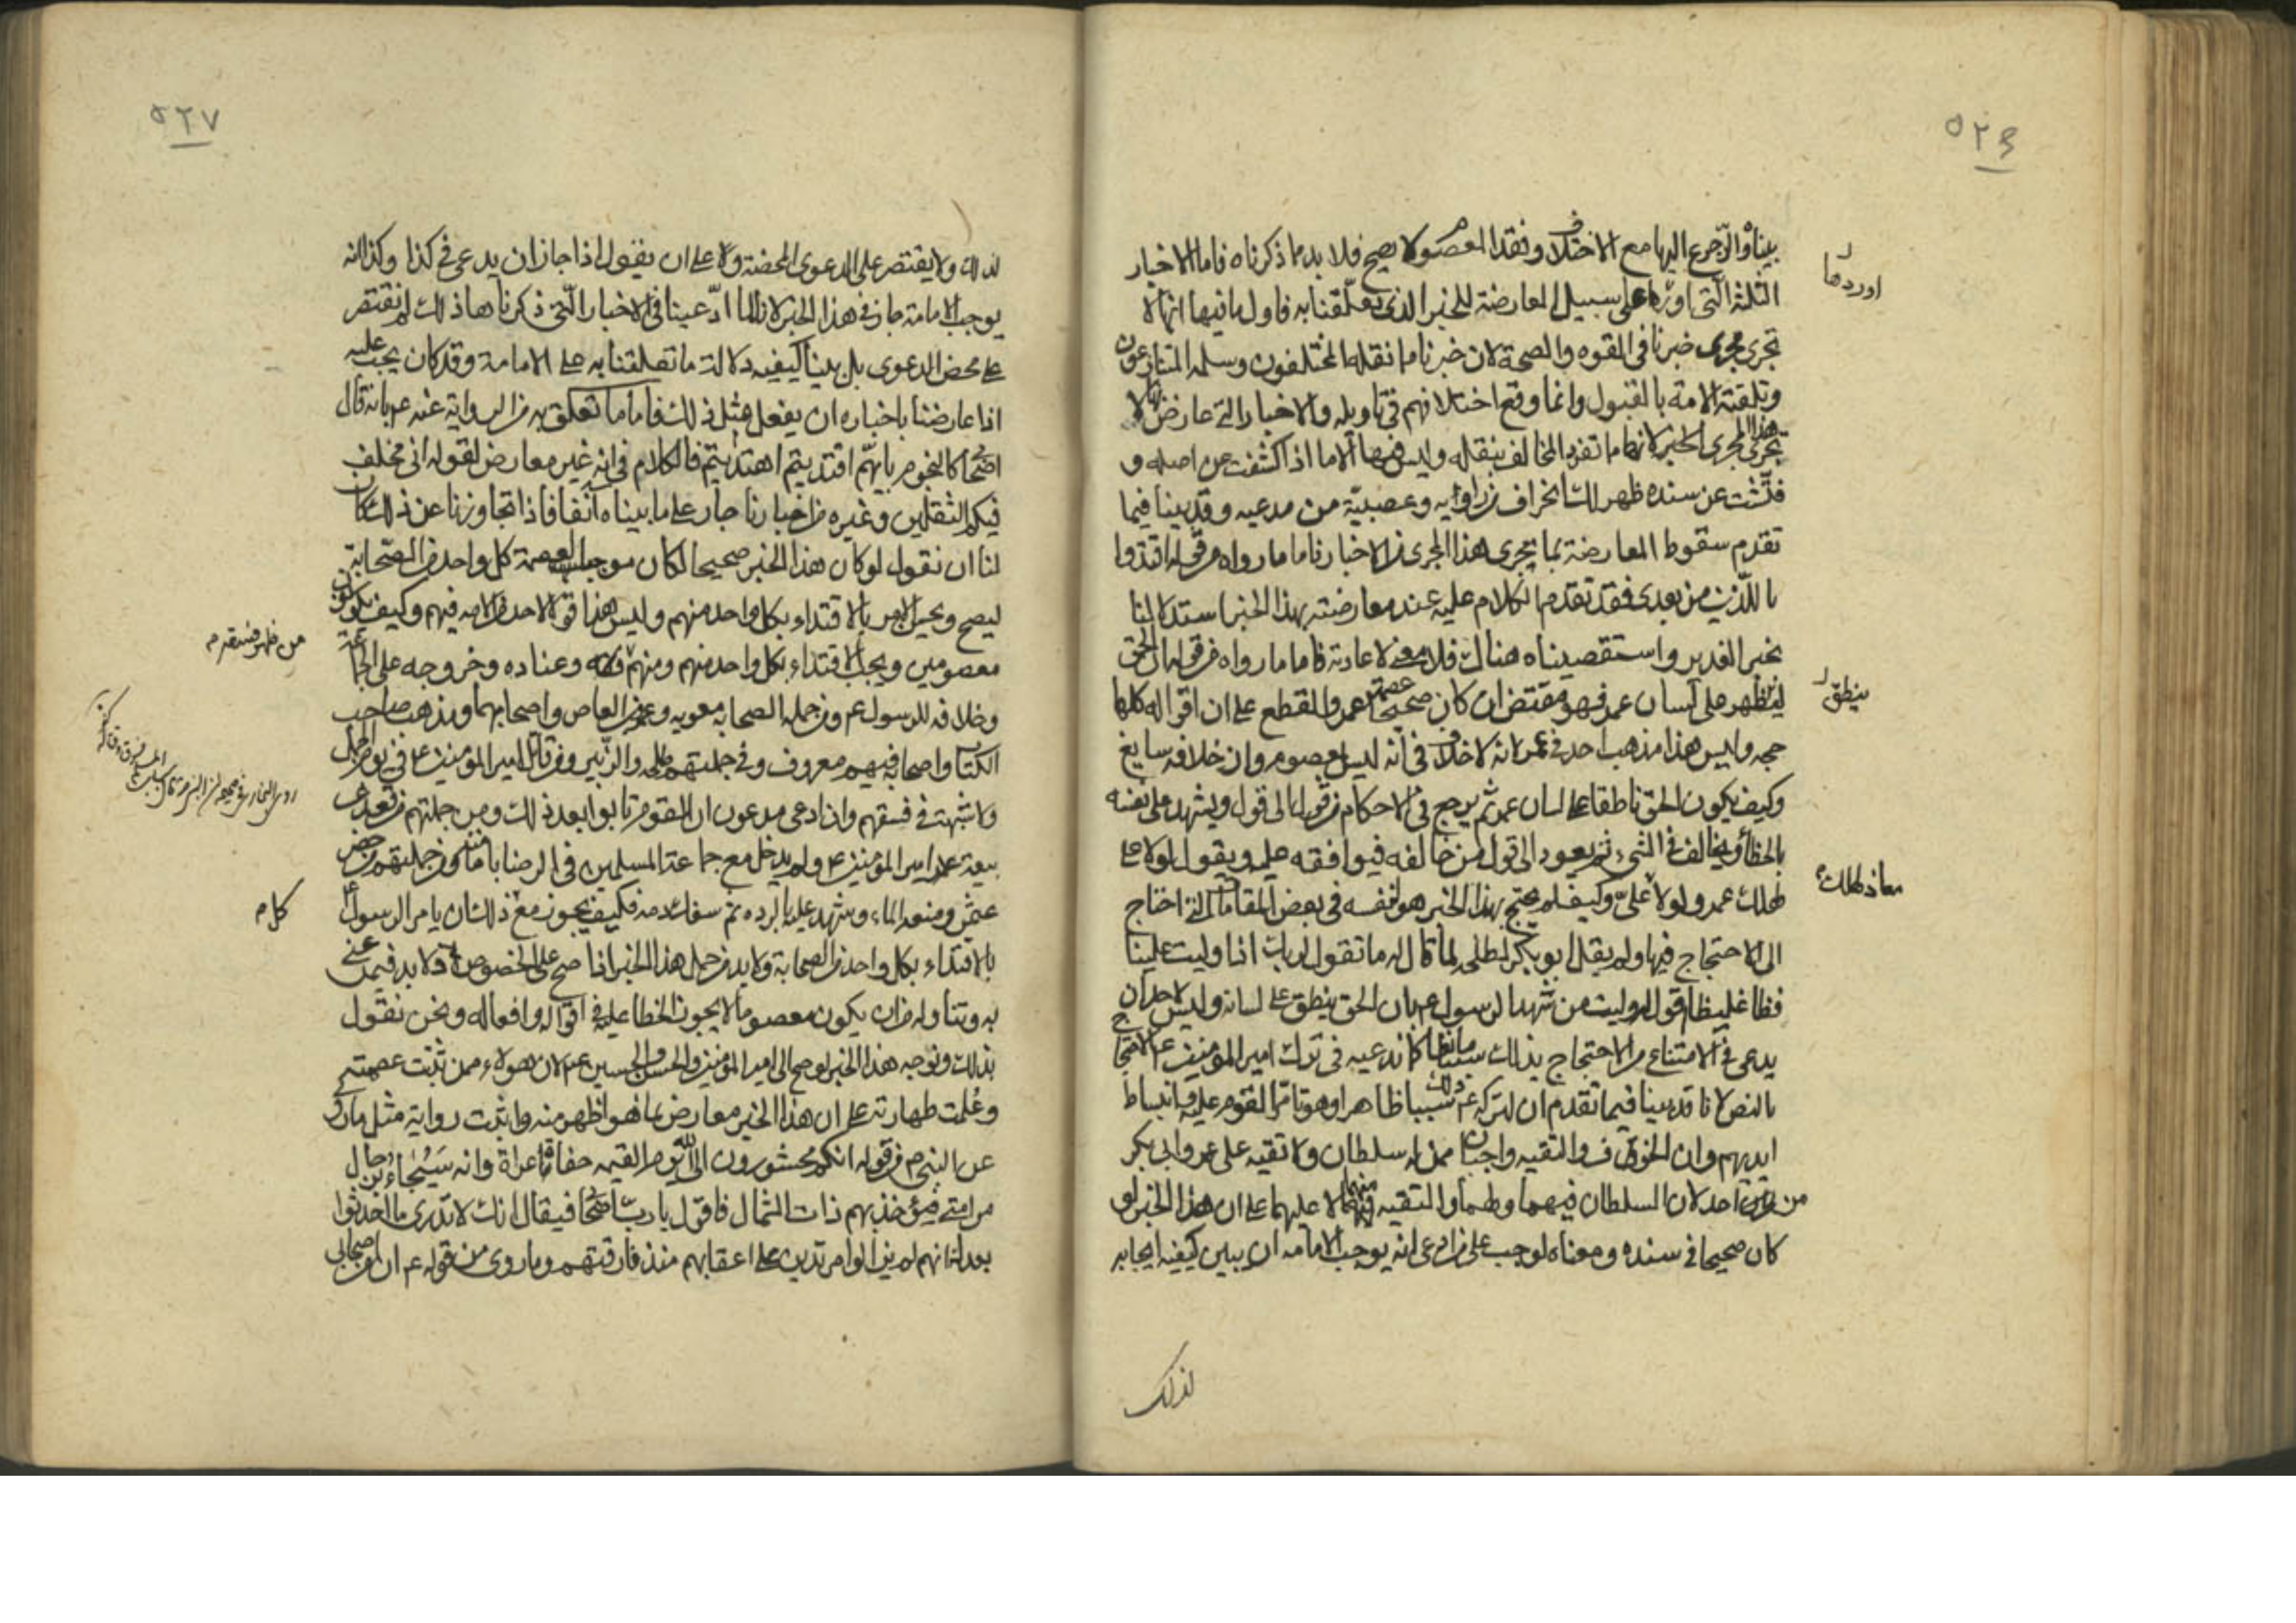 ٥٢٦
بيناه والرجوع اليها مع الاختلاف وفقد المعصوم لا يصح فلا بد مما ذكرناه فاما الاخبار
الثلثة التى اوردها على سبيل المعارضة للخبر الذى تعلقنا به فاول ما فيها انها لا
تجرى مجرى خبرنا فى القوه والصحة لان خبرنا مما نقله المختلفون وسلمه المتنازعون
وتلقته الامة بالقبول وانما وقع اختلافهم فى تاويله والاخبار التى عارض بها لا
تجرى هذا المجرى لانها مما تفرد المخالف بنقله وليس فيها الا ما اذا كشفت عن اصله و
فتشت عن سنده ظهر لك انحراف من راويه وعصبية من مدعيه وقد بينا فيما
تقدم سقوط المعارضة بما يجرى هذا المجرى من الاخبار فاما ما رواه من قوله اقتدوا
باللذين من بعدى فقد تقدم الكلام عليه عند معارضته بهذا الخبر استدلالنا
بخبر الغدير واستقصيناه هناك فلا معنى لاعادته فاما ما رواه من قوله ان الحق
لينطق على لسان عمر فهو مقتض ان كان صحيحا عصمة عمر والقطع على ان اقواله كلها
حجه وليس هذا مذهب احد فى عمر لانه لا خلاف فى انه ليس بمعصوم وان خلافه سايغ
وكيف يكون الحق ناطقا على لسان عمر ثم يرجع فى الاحكام من قول الى قول ويشهد على نفسه
بالخطأ ويخالف فى الشىء ثم يعود الى قول من خالفه فيوافقه عليه ويقول لولا على
لهلك عمر ولولا معاذ لهلك عمر وكيف لم يحتج بهذا الخبر هو لنفسه فى بعض المقامات التى احتاج
الى الاحتجاج فيها ولم يقل ابو بكر لطلحه لما قال له ما تقول لربك اذا وليت علينا
فظا غليظا اقول له وليت من شهد الرسول عم بان الحق ينطق على لسانه وليس لاحد ان
يدعى فى الامتناع من الاحتجاج بذلك سببا مانعا كما ندعيه فى ترك امير المؤمنين ع الاحتجاج
بالنص لانا قد بينا فيما تقدم ان لتركه ع ذلك سببا ظاهرا وهو تامر القوم عليه وانبساط
ايديهم وان الخوف والتقيه واجبان ممن له سلطان ولا تقيه على عمر وابى بكر
من احد لان السلطان فيهما ولهما والتقيه منهما لا عليهما على ان هذا الخبر لو
كان صحيحا فى سنده ومعناه لوجب على من ادعى انه يوجب الامامه ان يبين كيفيه ايجابه
لذلك
اوردها
ينطق
معاذ لهلك
٥٢٧
لذلك ولا يقتصر على الدعوى المحضة ولا على ان يقول اذا جاز ان يدعى فى كذا وكذا انه
يوجب الامامة جاز فى هذا الخبر لاننا لما ادعينا فى الاخبار التى ذكرناها ذلك لم نقتصر
على محض الدعوى بل بينا كيفيه دلالة ما تعلقنا به على الامامة وقد كان يجب عليه
اذا عارضنا باخباره ان يفعل مثل ذلك فاما ما تعلق به من الرواية عنه عم بانه قال
اصحابى كالنجوم بايهم اقتديتم اهتديتم فالكلام فى انه غير معارض لقوله انى مخلف
فيكم الثقلين وغيره من اخبارنا جار على ما بيناه آنفا فاذا تجاوزنا عن ذلك كان
لنا ان نقول لو كان هذا الخبر صحيحا لكان موجبا لعصمة كل واحد من الصحابة
ليصح ويحسن الامر بالاقتداء بكل واحد منهم وليس هذا قولا لاحد من الامه فيهم وكيف يكونون
معصومين ويجب الاقتداء بكل واحد منهم ومنهم من ظهر فسقه وعناده وخروجه على الجماعة
وخلافه للرسول عم ومن جملة الصحابه معويه وعمرو بن العاص واصحابهما ومذهب صاحب
الكتاب واصحابه فيهم معروف وفى جملتهم طلحه والزبير ومن قاتل امير المؤمنين ع فى يوم الجمل
ولا شبهة فى فسقهم وان ادعى مدعون ان القوم تابوا بعد ذلك ومن جملتهم من قعد عن
بيعة امير المؤمنين ع ولم يدخل مع جماعة المسلمين فى الرضا بامامته ومن جملتهم من حصر
عثمن ومنعه الماء وشهد عليه بالرده ثم سفك دمه فكيف يجوز مع ذلك ان يامر الرسول ع
بالاقتداء بكل واحد من الصحابة ولا بد من حمل هذا الخبر اذا صح على الخصوص ولا بد فيمن عنى
به وتناوله من ان يكون معصوما لا يجوز الخطا عليه فى اقواله وافعاله ونحن نقول
بذلك ونوجه هذا الخبر لو صح الى امير المؤمنين والحسن والحسين ع لان هولاء ممن ثبتت عصمته
وعلمت طهارته على ان هذا الخبر معارض بما هو اظهر منه واثبت رواية مثل ما روى
عن النبى م من قوله انكم محشورون الى الله يوم القيمه حفاة عراة وانه سيجاء برجال
من امتى فيؤخذ بهم ذات الشمال فاقول يا رب اصحابى فيقال انك لا تدرى ما احدثوا
بعدك انهم لم يزالوا مرتدين على اعقابهم منذ فارقتهم وما روى من قوله ع ان من اصحابى
من ظهر فسقه م
كلام